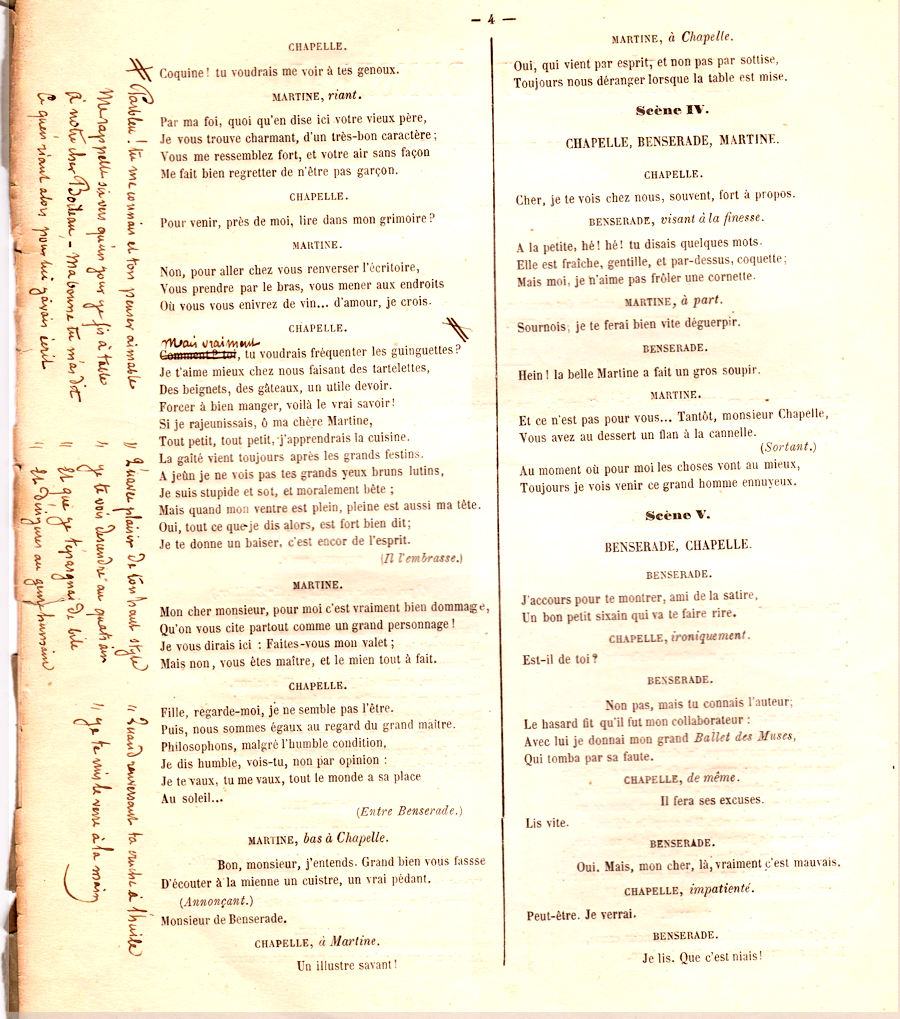 — 4 —
# Parbleu ! tu me connais et ton penser aimable
Me rappelle six vers qu'un jour je fis à table
à notre cher Boileau, - Ma bonne tu m'as dit
Ce qu'en riant alors pour lui j'avais écrit
" Qu'avec plaisir de ton haut style
" je te vois descendre au quatrain
" Et que je t'épargnai de bile
" Et d'injures au genre humain
" Quand renversant ta cruche à l'huile
" je te mis le verre à la main
CHAPELLE.
Coquine ! tu voudrais me voir à tes genoux.
MARTINE, riant.
Par ma foi, quoi qu'en dise ici votre vieux père,
Je vous trouve charmant, d'un très-bon caractère ;
Vous me ressemblez fort, et votre air sans façon
Me fait bien regretter de n'être pas garçon.
CHAPELLE.
Pour venir, près de moi, lire dans mon grimoire ?
MARTINE.
Non, pour aller chez vous renverser l'écritoire,
Vous prendre par le bras, vous mener aux endroits
Où vous vous enivrez de vin... d'amour, je crois.
CHAPELLE.
#
Mais vraiment
Comment ? toi, tu voudrais fréquenter les guinguettes ?
Je t'aime mieux chez nous faisant des tartelettes,
Des beignets, des gâteaux, un utile devoir.
Forcer à bien manger, voilà le vrai savoir !
Si je rajeunissais, ô ma chère Martine,
Tout petit, tout petit, j'apprendrais la cuisine.
La gaîté vient toujours après les grands festins.
A jeûn je ne vois pas tes grands yeux bruns lutins,
Je suis stupide et sot, et moralement bête ;
Mais quand mon ventre est plein, pleine est aussi ma tête.
Oui, tout ce que je dis alors, est fort bien dit ;
Je te donne un baiser, c'est encor de l'esprit.
(Il l'embrasse.)
MARTINE.
Mon cher monsieur, pour moi c'est vraiment bien dommage,
Qu'on vous cite partout comme un grand personnage !
Je vous dirais ici : Faites-vous mon valet ;
Mais non, vous êtes maître, et le mien tout à fait.
CHAPELLE.
Fille, regarde-moi, je ne semble pas l'être.
Puis, nous sommes égaux au regard du grand maître.
Philosophons, malgré l'humble condition,
Je dis humble, vois-tu, non par opinion :
Je te vaux, tu me vaux, tout le monde a sa place
Au soleil...
(Entre Benserade.)
MARTINE, bas à Chapelle.
Bon, monsieur, j'entends. Grand bien vous fassse
D'écouter à la mienne un cuistre, un vrai pédant.
(Annonçant.)
Monsieur de Benserade.
CHAPELLE, à Martine.
Un illustre savant !
MARTINE, à Chapelle.
Oui, qui vient par esprit, et non pas par sottise,
Toujours nous déranger lorsque la table est mise.
Scène IV.
CHAPELLE, BENSERADE, MARTINE.
CHAPELLE.
Cher, je te vois chez nous, souvent, fort à propos.
BENSERADE, visant à la finesse.
A la petite, hé ! hé ! tu disais quelques mots.
Elle est fraîche, gentille, et par-dessus, coquette ;
Mais moi, je n'aime pas frôler une cornette.
MARTINE, à part.
Sournois, je te ferai bien vite déguerpir.
BENSERADE.
Hein ! la belle Martine a fait un gros soupir.
MARTINE.
Et ce n'est pas pour vous... Tantôt, monsieur Chapelle,
Vous avez au dessert un flan à la cannelle.
(Sortant.)
Au moment où pour moi les choses vont au mieux,
Toujours je vois venir ce grand homme ennuyeux.
Scène V.
BENSERADE, CHAPELLE.
BENSERADE.
J'accours pour te montrer, ami de la satire,
Un bon petit sixain qui va te faire rire.
CHAPELLE, ironiquement.
Est-il de toi ?
BENSERADE.
Non pas, mais tu connais l'auteur ;
Le hasard fit qu'il fut mon collaborateur :
Avec lui je donnai mon grand Ballet des Muses,
Qui tomba par sa faute.
CHAPELLE, de même.
Il fera ses excuses.
Lis vite.
BENSERADE.
Oui. Mais, mon cher, là, vraiment c'est mauvais.
CHAPELLE, impatienté.
Peut-être. Je verrai.
BENSERADE.
Je lis. Que c'est niais !